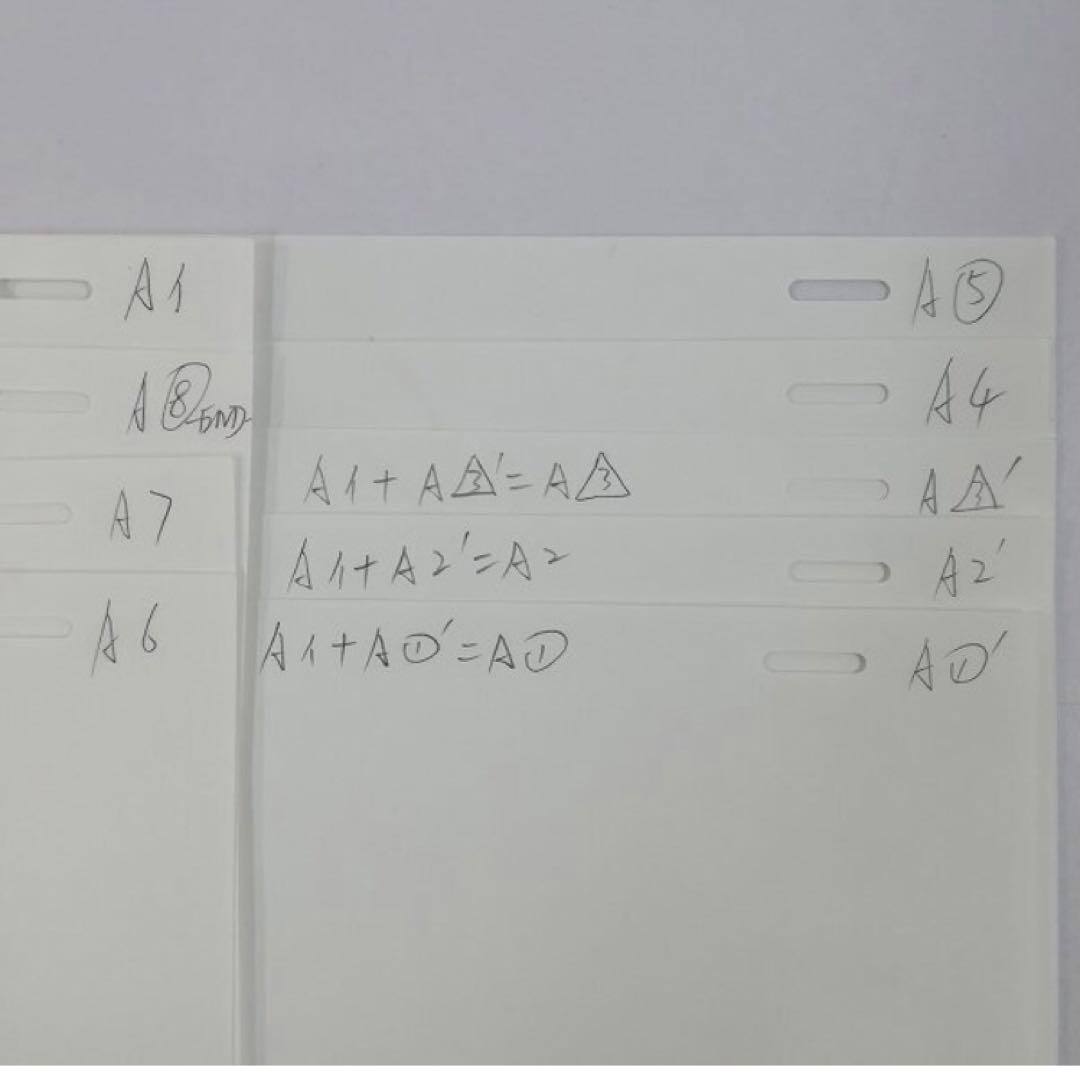 A1
A⑧END
A7
A6
A⑤
A4
A1+A△3'=A△3
A△3'
A1+A2'=A2
A2'
A1+A①'=A①
A①'